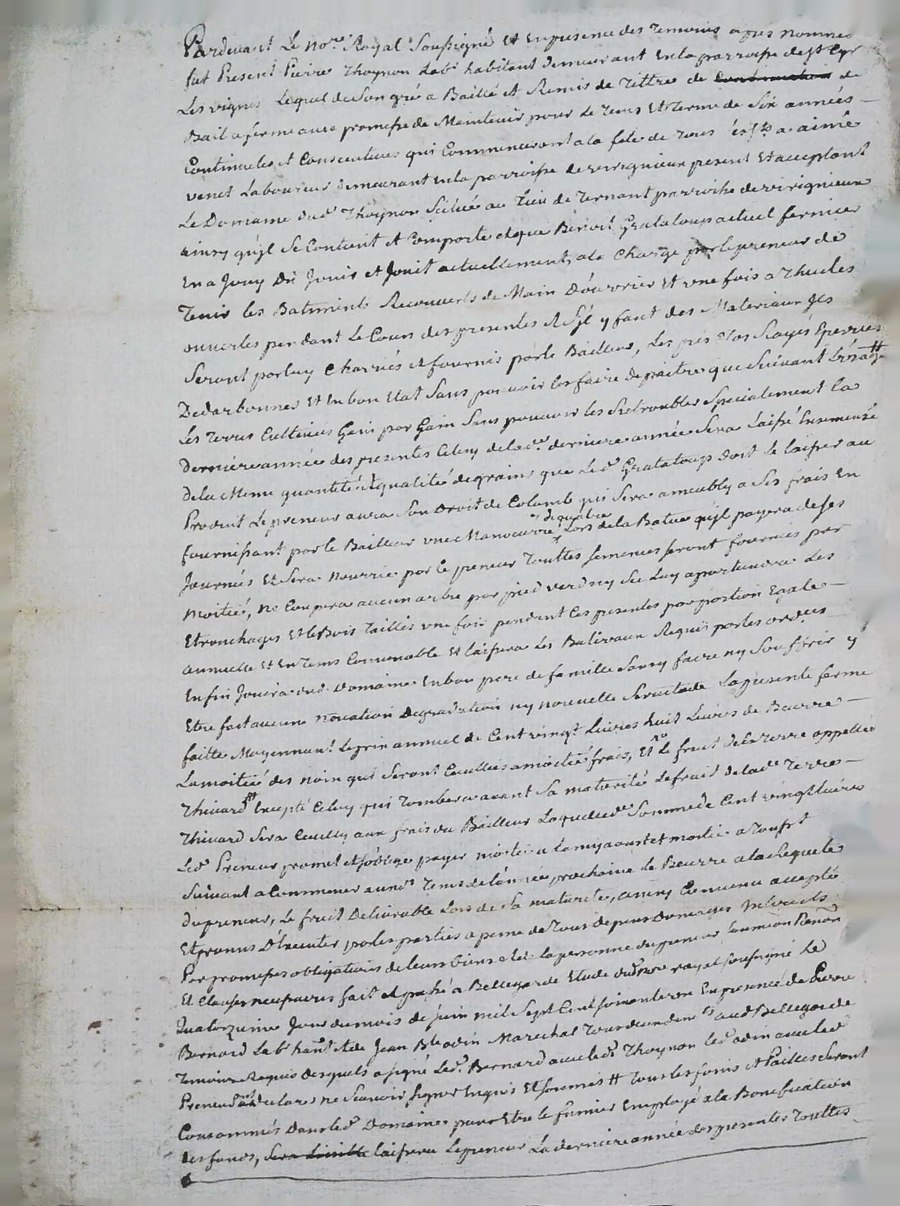 Pardevant Le no.re Royal Soussigné Et En presence des Temoins apres nommés
fut Present Pierre Thoynon Lab.r habitant demeurant En la parroisse de S.t Cyr
Les vignes Lequel de Son gré a Baillé et Remis de Tittre de de
Bail a ferme avec promesse de Maintenir pour le Tems Et terme de Six années
Continuelles et Consecutives qui Commenceront a la fete de Tous a aimé
venet Laboureur demeurant En la parroisse de virignieux present Et acceptant
Le Domaine dud. Thoynon Scitué au Lieu de Ternant parroisse de virignieux
ainsy qu'jl Se Contient et Comporte et que Benoit Grataloup actuel fermier
En a Jouy Dû Jouir et Jouit actuellement, a la Charge par le preneur de
Tenir les Batiments Recouverts de Main D'ouvrier Et une fois a Thuiles
ouvertes pendant le Cours des presentes et S'jl y faut des Materiaux jls
Seront par luy Charriés et fournis par le Bailleur, Les prés Clos Rayés Epierrés
Dedarbonnés Et En bon Etat Sans pouvoir les faire depaitre que Suivant L'usage
Les Terres Cultivées Gain par Gain Sans pouvoir les Spécialement la
Derniere année des presentes Celuy de lad. derniere année Sera Laissé Ensemensé
de la Meme quantité et qualité de grains que Led. Grataloup doit le laisser au
Produit Le preneur aura Son Droit de Colomb qui Sera ameubly a Ses frais En
fournissant par le Bailleur une Manoeuvre de quatre Lors de la Batue qu'jl payera de Ses
Journés Et Sera Nourrie par le preneur Touttes Semences Seront fournies par
Moitiée, ne Coupera aucun arbre par pied verd ny Sec Luy apartiendra Les
Etronchages Et le Bois Taillis une fois pendant Les presentes par portion Egale
annuelle Et En Tems Convenable Et laissera Les Baliveaux Requis par les ord.ces
Enfin Jouira dud. Domaine En bon pere de famille Sans y faire ny Souffrir y
Etre fait aucune novation Degradation ny nouvelle Servitude La presente ferme
faitte Moyennant Le prix annuel de Cent vingt Livres huit Livres de Beurre
La moitiée des noix qui Seront Cueillies a moitié frais, Et Le fruit de la Terre appellée
Thivard Excepté Celuy qui Tombera avant Sa maturité Le fruit de lad. Terre
Thivard Sera Cueilly aux frais du Bailleur Laquelle Somme de Cent vingt Livres
Led. Preneur promet et s'oblige payer moitié a la my aoust et moitié a Toussts
Suivant a Commencer aud. Tems de l'année prochaine le Beurre a la Requete
du preneur, Le fruit Delivrable Lors de Sa maturité, ainsy Convenu accepté
Et promis D'Executer par les parties a peine de Tous depens Domages Interests
Par promesses obligations de leurs biens et de la personne du preneur Soumission Renon
Et Clauses fait et passé a Bellegarde Etude du no.re royal Soussigné Le
Quatorzieme Jour du mois de Juin mil Sept Cent Soixante En presence de Pierre
Bernard Lab.r hab.t et de Jean B.te odin Marechal Tous deux dem.ts aud. Bellegarde
Temoins Requis Desquels a Signé Led. Bernard avec led. Thoynon led. odin avec led.
Preneur ont declarés ne Scavoir Signer Enquis Et Sommés Tous les foins et Pailles Seront
Consommés dans led. Domaine pour Etre le fumier Employé a la Bonification
des fonds, laissera Le preneur La derniere année des presentes Touttes